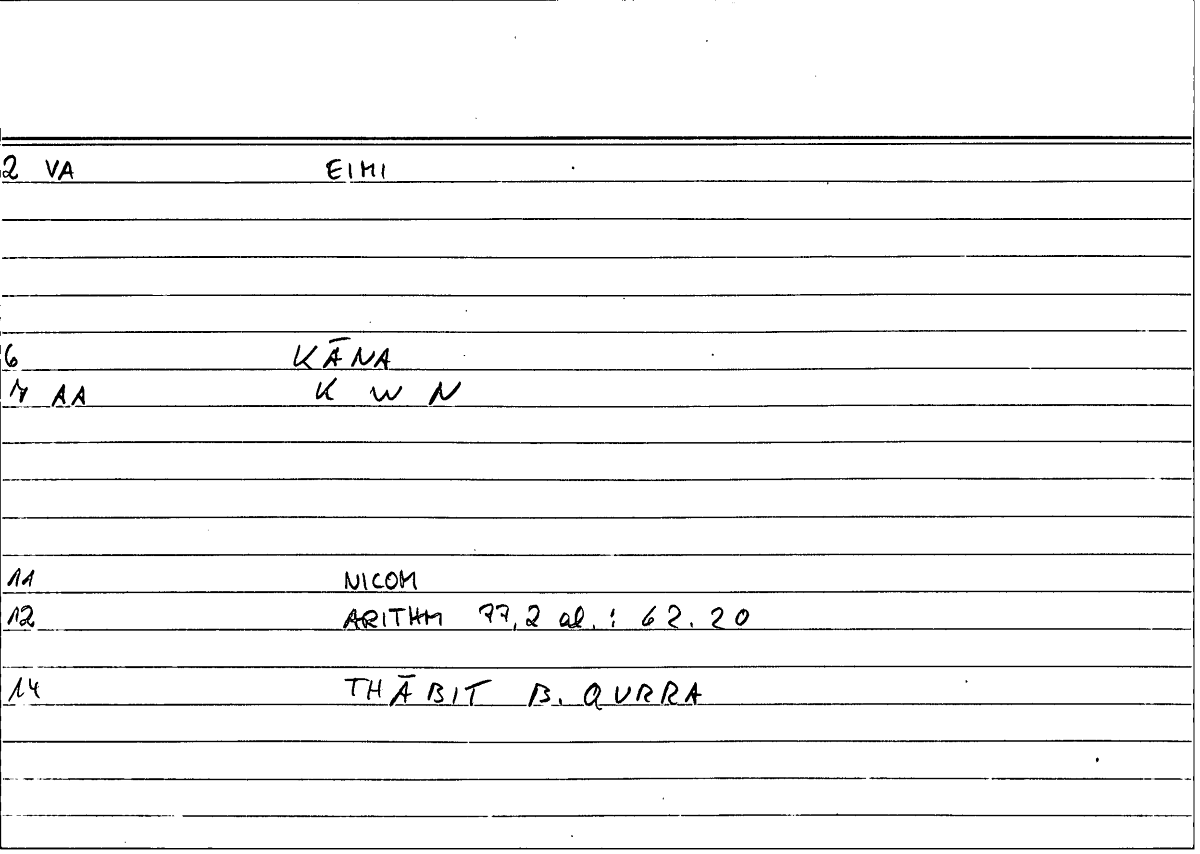 2 VA EIMI
6 KĀNA
7 AA K W N
11 NICOM
12 ARITHM 77,2 al. : 62.20
14 THĀBIT B. QURRA